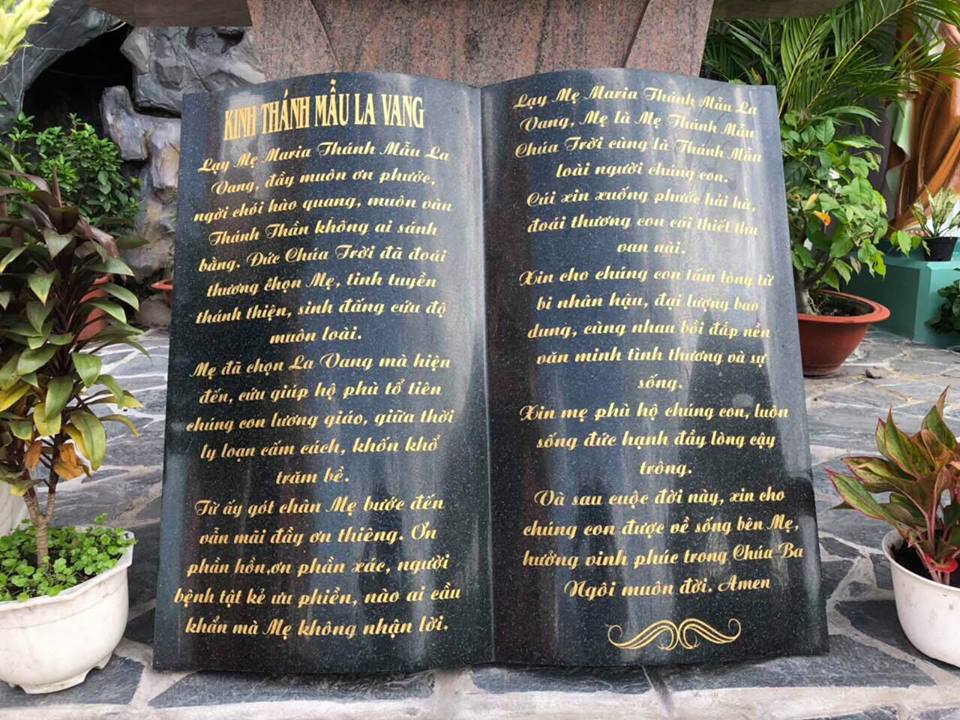 KINH THÁNH MẪU LA VANG
Lạy Mẹ Maria Thánh Mẫu La
Vang, đầy muôn ơn phước,
ngời chói hào quang, muôn vàn
Thánh Thần không ai sánh
bằng. Đức Chúa Trời đã đoái
thương chọn Mẹ, tinh tuyền
thánh thiện, sinh đấng cứu độ
muôn loài.
Mẹ đã chọn La Vang mà hiện
đến, cứu giúp hộ phù tổ tiên
chúng con lương giáo, giữa thời
ly loạn cấm cách, khốn khổ
trăm bề.
Từ ấy gót chân Mẹ bước đến
vẫn mãi đầy ơn thiêng. Ơn
phần hồn,ơn phần xác, người
bệnh tật kẻ ưu phiền, nào ai cầu
khẩn mà Mẹ không nhận lời.
Lạy Mẹ Maria Thánh Mẫu La
Vang, Mẹ là Mẹ Thánh Mẫu
Chúa Trời cùng là Thánh Mẫu
loài người chúng con.
Cúi xin xuống phước hải hà,
đoái thương con cái thiết tha
van nài.
Xin cho chúng con tấm lòng từ
bi nhân hậu, đại lượng bao
dung, cùng nhau bồi đắp nền
văn minh tình thương và sự
sống.
Xin mẹ phù hộ chúng con, luôn
sống đức hạnh đầy lòng cậy
trông.
Và sau cuộc đời này, xin cho
chúng con được về sống bên Mẹ,
hưởng vinh phúc trong Chúa Ba
Ngôi muôn đời. Amen